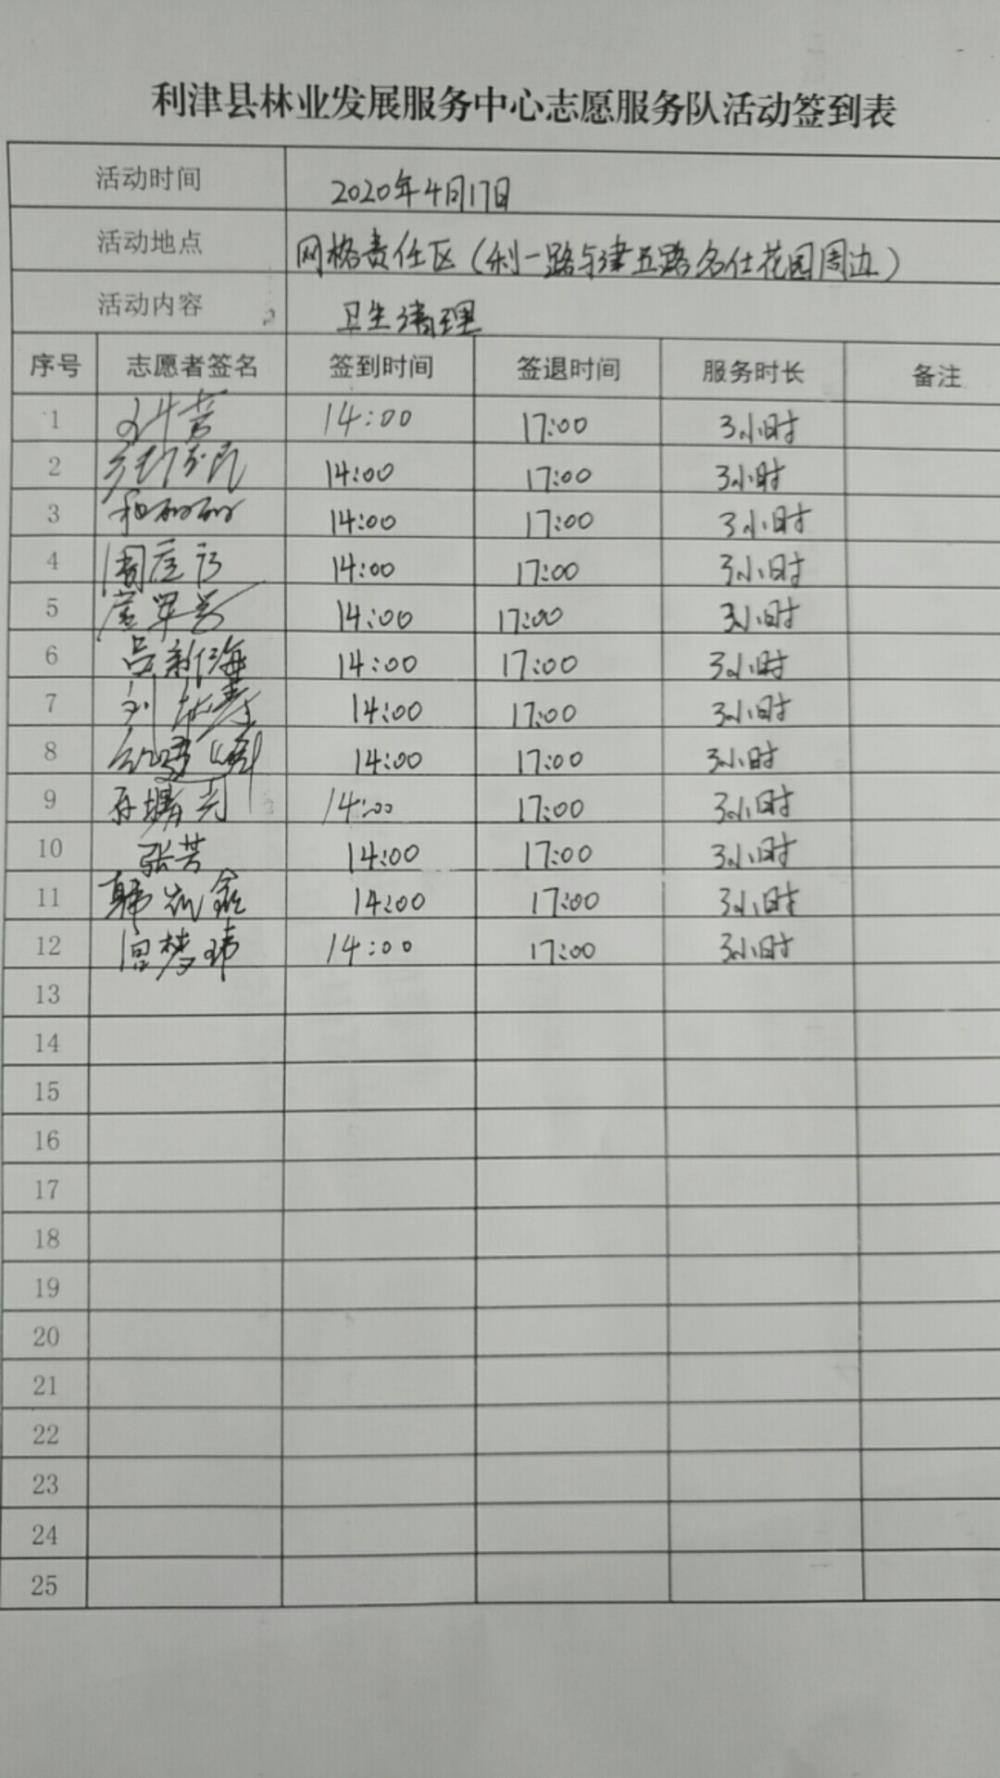 利津县林业发展服务中心志愿服务队活动签到表
活动时间 2020年4月17日
活动地点 网格责任区(利一路与津五路名仕花园周边)
活动内容 卫生清理
序号 志愿者签名 签到时间 签退时间 服务时长 备注
1 14:00 17:00 3小时
2 14:00 17:00 3小时
3 14:00 17:00 3小时
4 14:00 17:00 3小时
5 14:00 17:00 3小时
6 吕新海 14:00 17:00 3小时
7 14:00 17:00 3小时
8 14:00 17:00 3小时
9 14:00 17:00 3小时
10 张芳 14:00 17:00 3小时
11 14:00 17:00 3小时
12 14:00 17:00 3小时
13
14
15
16
17
18
19
20
21
22
23
24
25